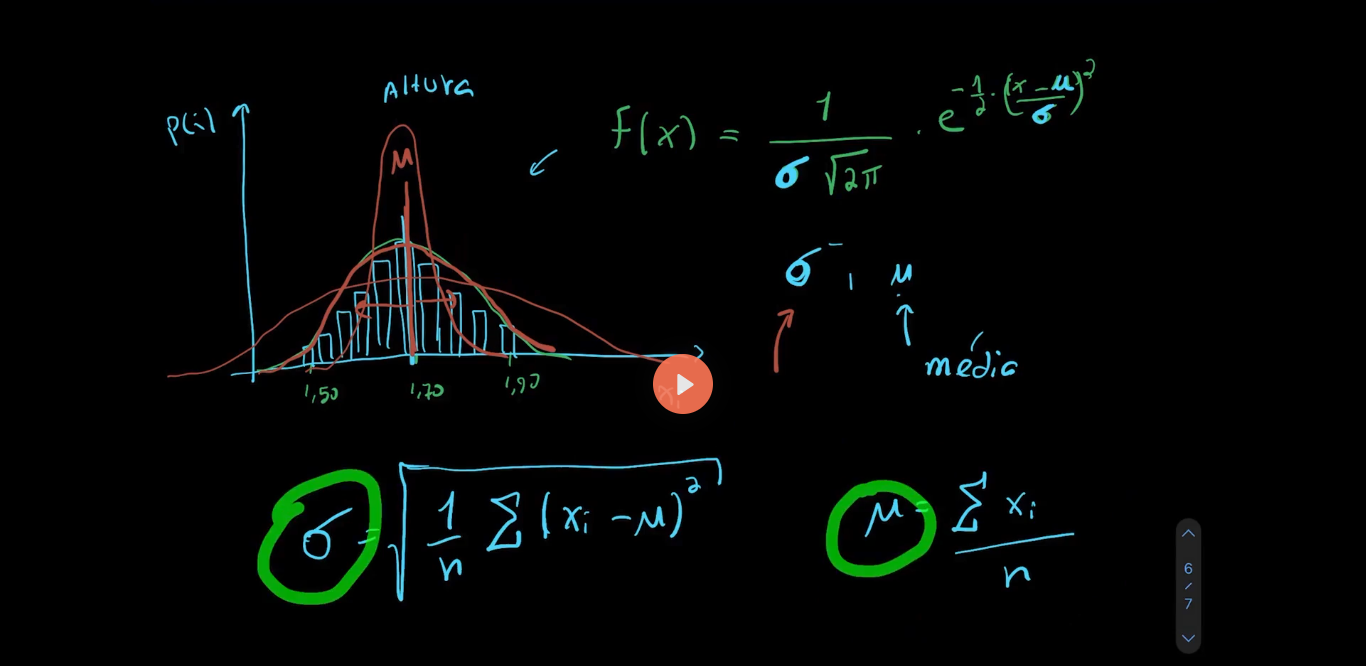 Altura
p(i)
μ
1,50 1,70 1,90
xi
f(x) = 1 / (σ √2π) · e^(-1/2 · ((x - μ)/σ)²)
σ , μ
média
σ = √(1/n ∑ (xi - μ)²)
μ = ∑ xi / n
6
/
7